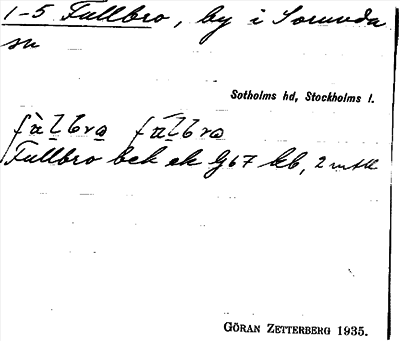 1-5 Fullbro, by i Sorunda
sn
Sotholms hd, Stockholms l.
fàlbro fálbro
Fullbro bek ek G67 kb, 2 mtll
GÖRAN ZETTERBERG 1935.